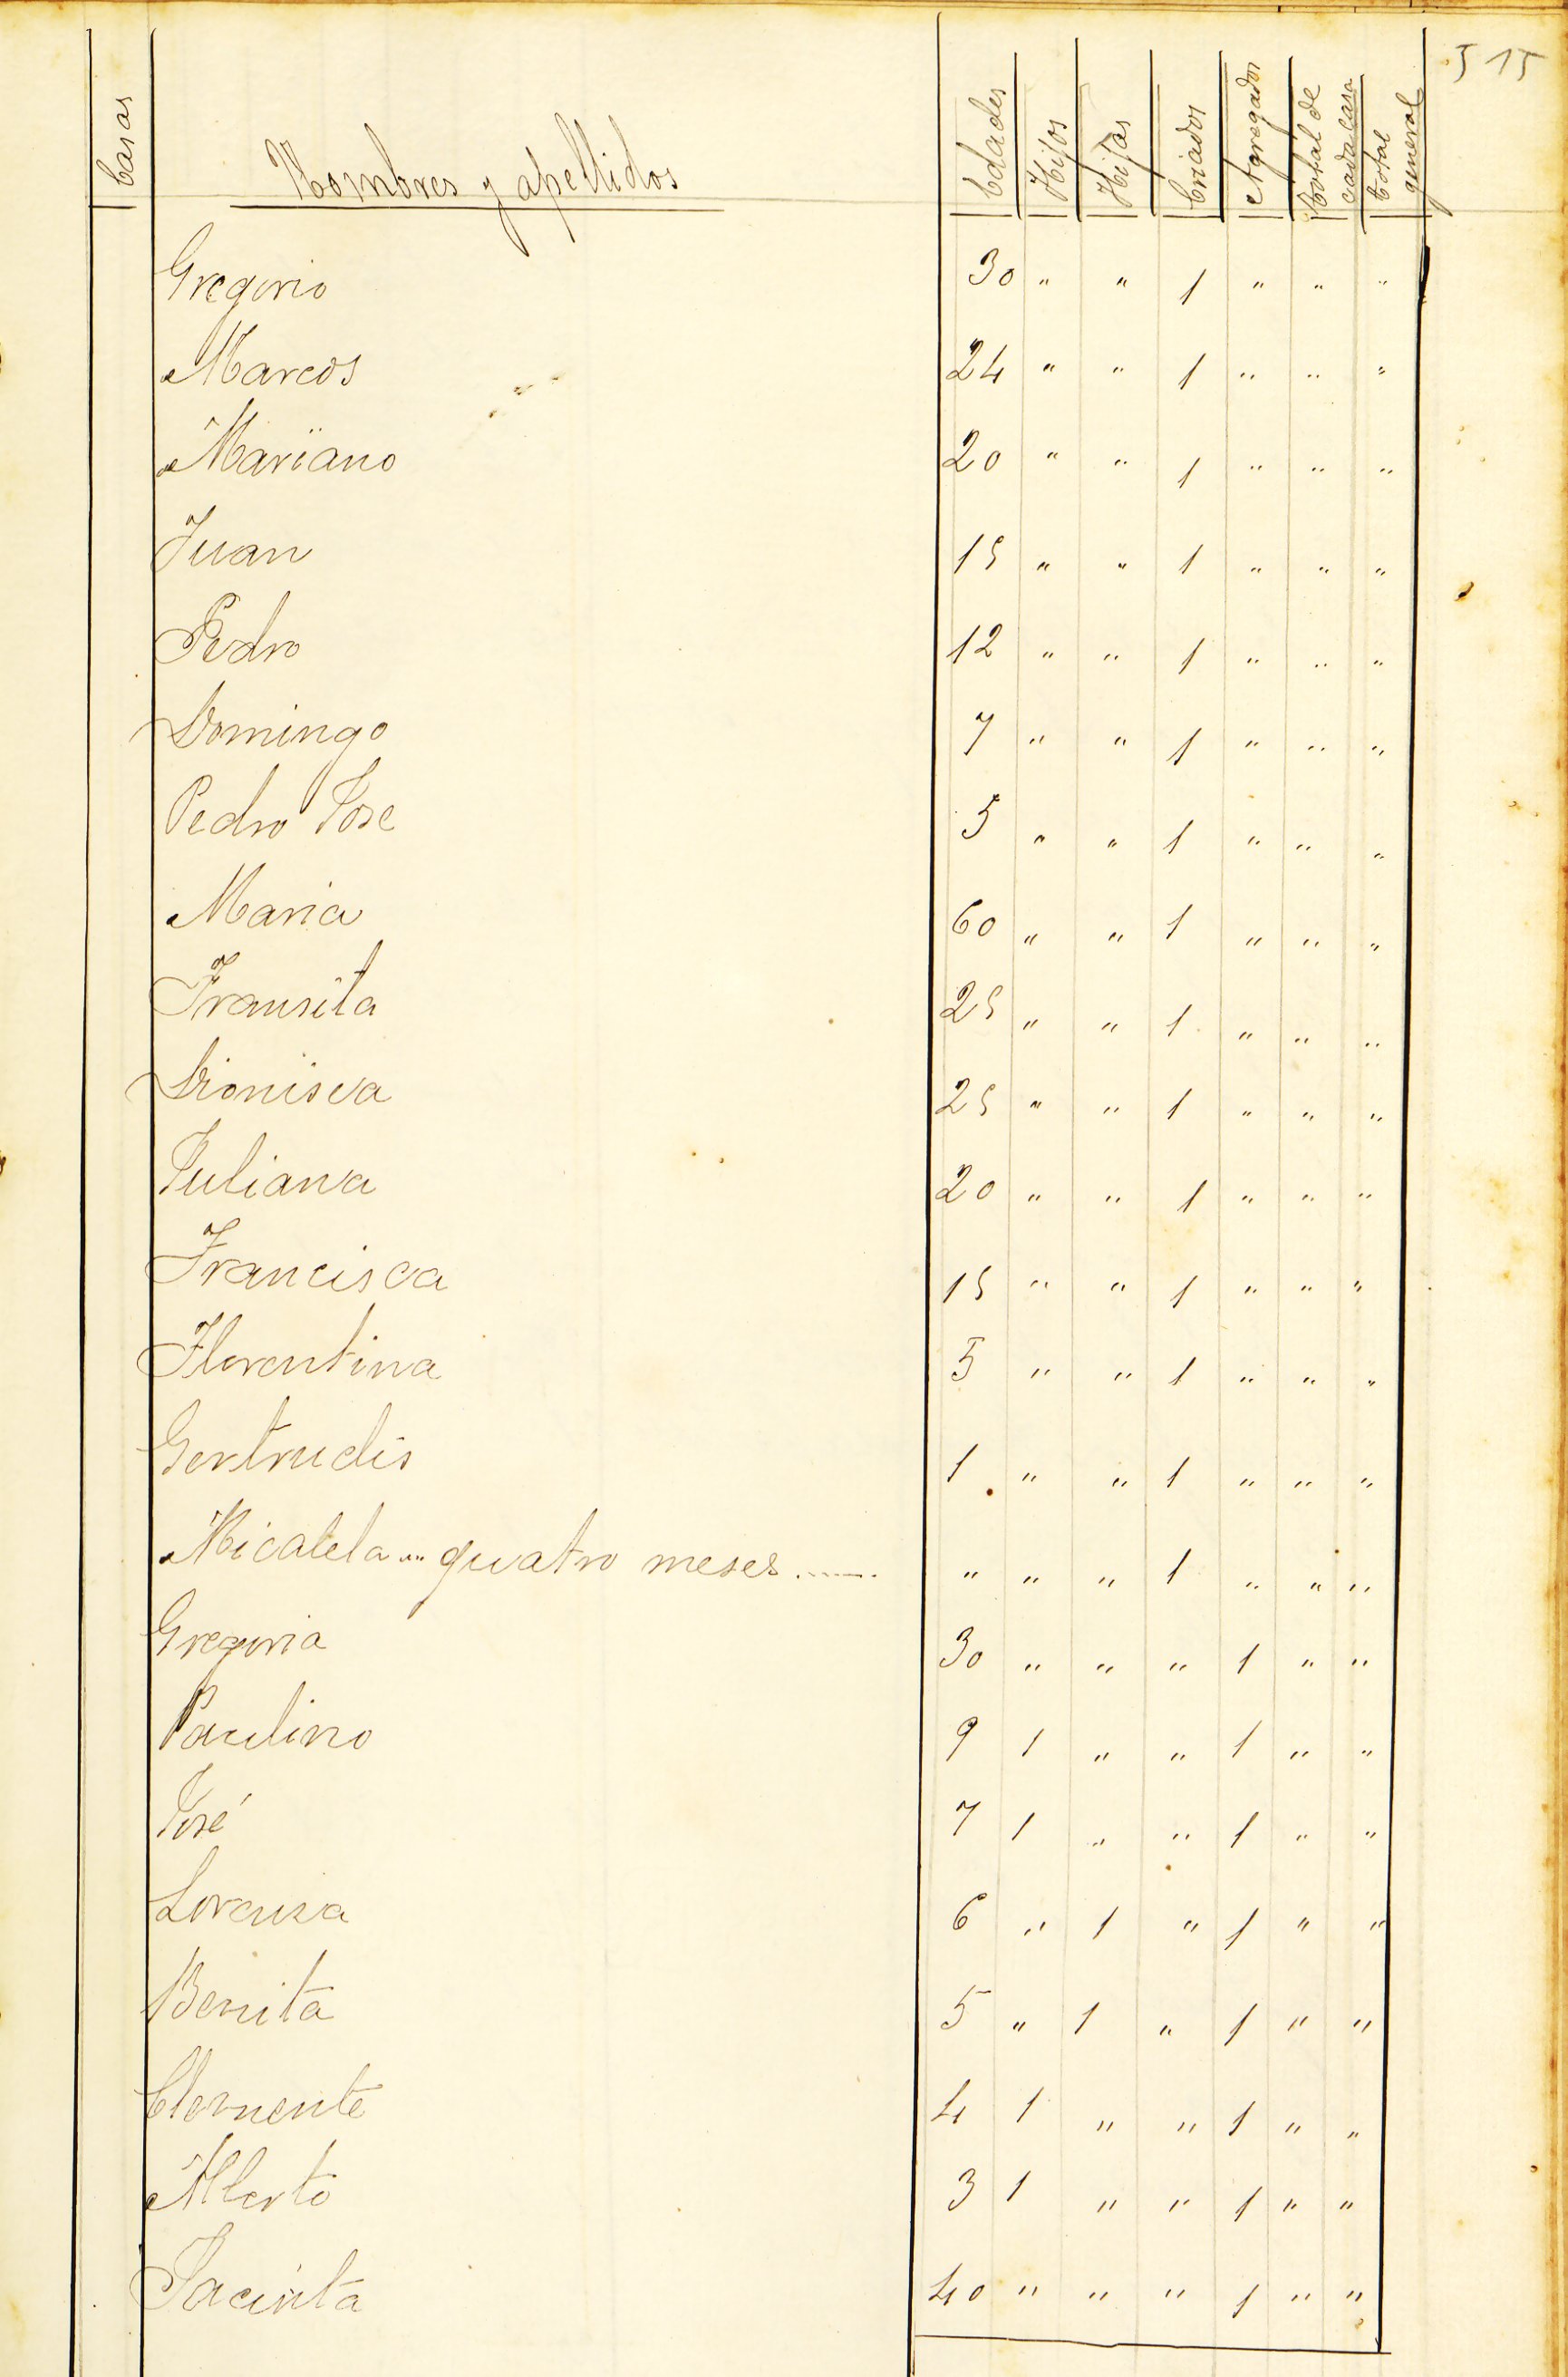 515
Casas Nombres y apellidos Edades Hijos Hijas Criados Agregados Total de cada casa Total general
Gregorio 30 " " 1 " " "
Marcos 24 " " 1 " " "
Mariano 20 " " 1 " " "
Juan 15 " " 1 " " "
Pedro 12 " " 1 " " "
Domingo 7 " " 1 " " "
Pedro Jose 5 " " 1 " " "
Maria 60 " " 1 " " "
Transita 25 " " 1 " " "
Dionisia 25 " " 1 " " "
Juliana 20 " " 1 " " "
Francisca 15 " " 1 " " "
Florentina 5 " " 1 " " "
Gertrudis 1 " " 1 " " "
Micalela... quatro meses....... " " " 1 " " "
Gregoria 30 " " " 1 " "
Paulino 9 1 " " 1 " "
José 7 1 " " 1 " "
Lorenza 6 " 1 " 1 " "
Benita 5 " 1 " 1 " "
Clemente 4 1 " " 1 " "
Alberto 3 1 " " 1 " "
Jacinta 40 " " " 1 " "